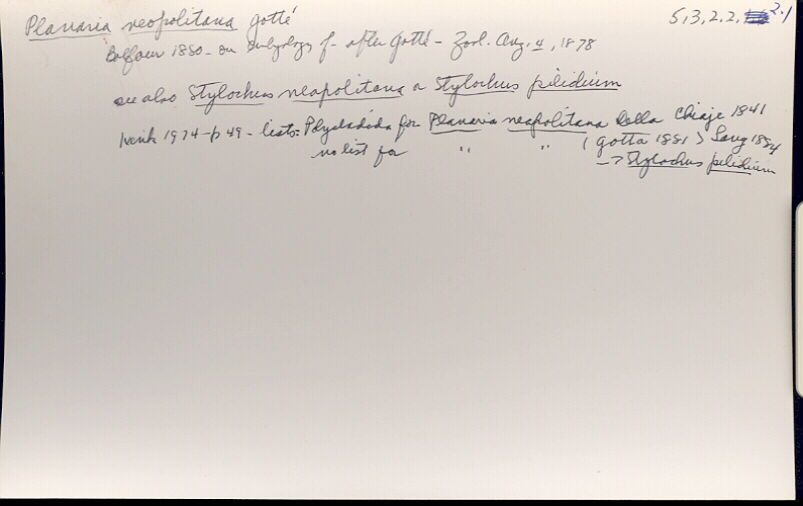 Planaria neopolitana Gotté 5,3,2,2, 2.1
Balfour 1880 - on embryology of - after Gotté - Zool. Anz. 4, 1878
see also Stylochus neapolitana & Stylochus pilidium
1974 - p 49 - lists: Polycladida for Planaria neapolitana Della Chiaje 1841
no list for " " (Gotta 1881) Lang 1884
-> Stylochus pilidium